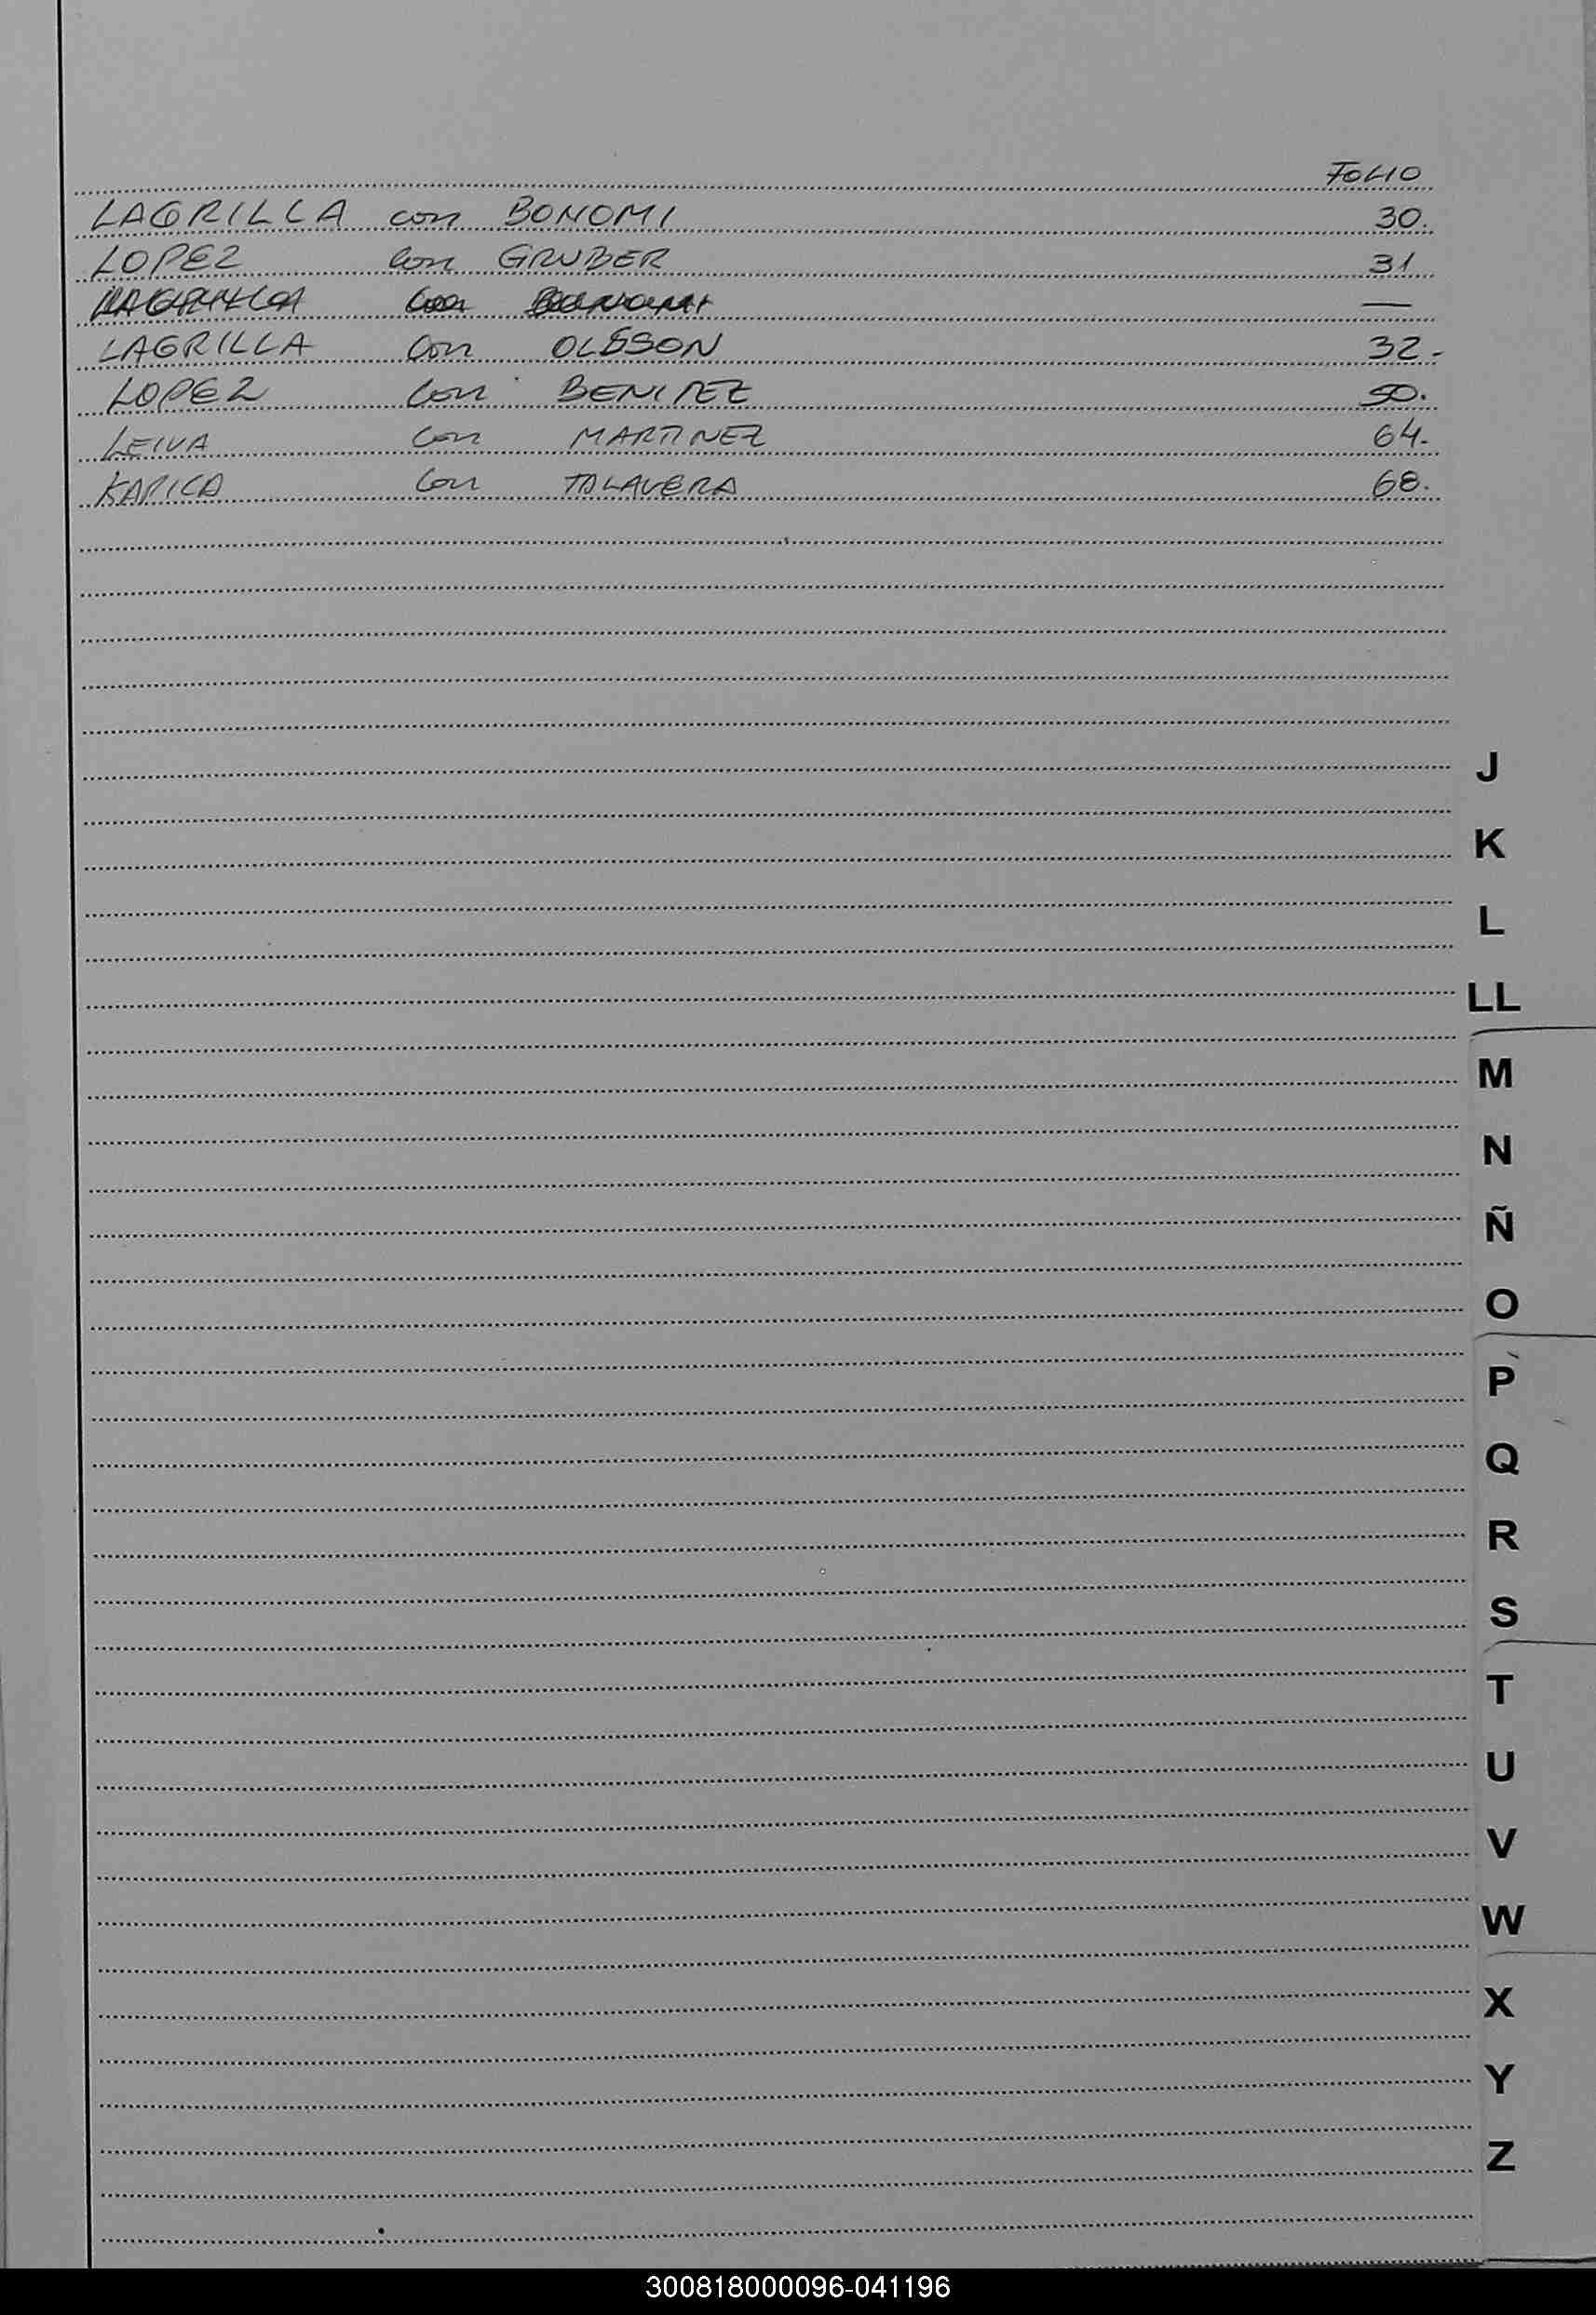 FOLIO
LAGRILLA con BONOMI 30.
LOPEZ con GRUBER 31
LAGRILLA con BONOMI —
LAGRILLA con OLSSON 32.
LOPEZ con BENITEZ 50.
LEIVA con MARTINEZ 64.
con TALAVERA 68.
J
K
L
LL
M
N
Ñ
O
P
Q
R
S
T
U
V
W
X
Y
Z
300818000096-041196